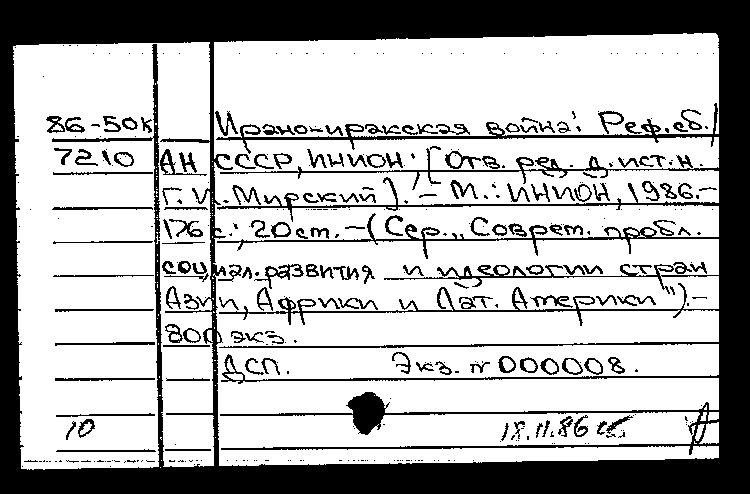 86-50к Ирано-иракская война: Реф.сб./
7210 АН СССР, ИНИОН; [Отв. ред. д.ист.н.
Г.И.Мирский]. - М.: ИНИОН, 1986.-
176 с.; 20 ст. - (Сер. „Соврет. пробл.
социал. развития и идеологии стран
Азии, Африки и Лат. Америки").-
800 экз.
ДСП. Экз. № 000008.
10 18.11.86